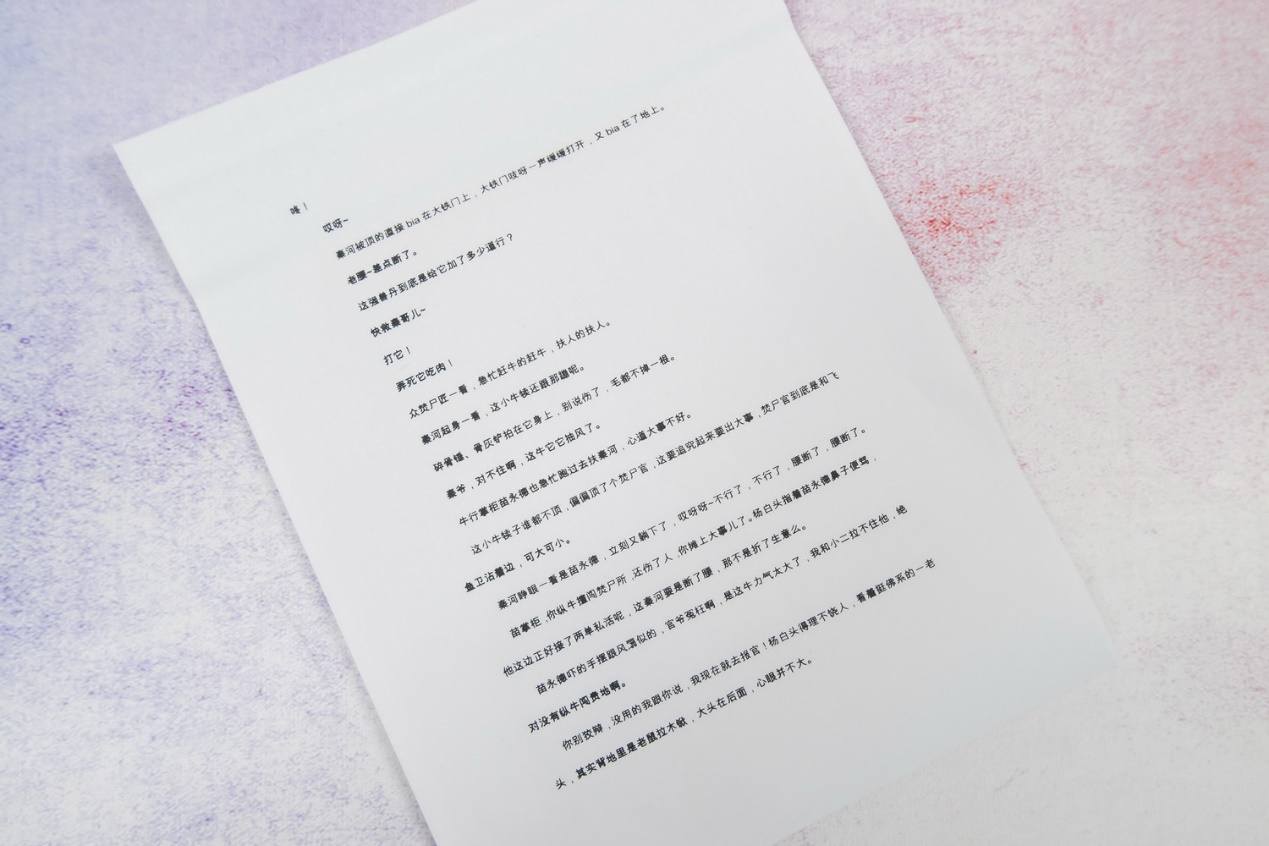 咚！
哎呀~
秦河被顶的直接 bia 在大铁门上，大铁门吱呀一声缓缓打开，又 bia 在了地上。
老腰~差点断了。
这强兽丹到底是给它加了多少道行？
快救秦哥儿~
打它！
弄死它吃肉！
众焚尸匠一看，急忙赶牛的赶牛，扶人的扶人。
秦河起身一看，这小牛犊还跟那蹦呢。
碎骨锤、骨灰铲拍在它身上，别说伤了，毛都不掉一根。
秦爷，对不住啊，这牛它它抽风了。
牛行掌柜苗永德也急忙跑过去扶秦河，心道大事不好。
这小牛犊子谁都不顶，偏偏顶了个焚尸官，这要追究起来要出大事，焚尸官到底是和飞
鱼卫沾着边，可大可小。
秦河睁眼一看是苗永德，立刻又躺下了，哎呀呀~不行了，不行了，腰断了，腰断了。
苗掌柜,你纵牛擅闯焚尸所,还伤了人,你摊上大事儿了。杨白头指着苗永德鼻子便骂，
他这边正好接了两单私活呢，这秦河要是断了腰，那不是折了生意么。
苗永德吓的手摆跟风骚似的，官爷冤枉啊，是这牛力气太大了，我和小二拉不住他，绝
对没有纵牛闯贵地啊。
你别狡辩，没用的我跟你说，我现在就去报官！杨白头得理不饶人，看着挺佛系的一老
头，其实背地里是老鼠拉木锨，大头在后面，心眼并不大。